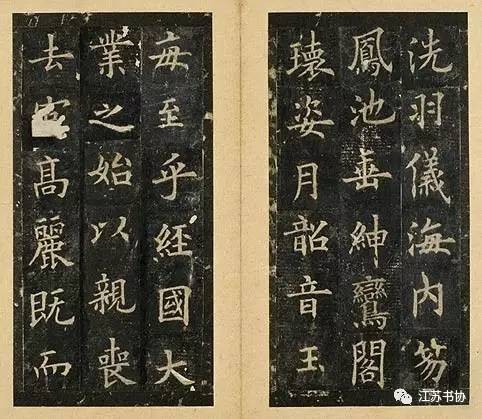 洗羽儀海內笏
鳳池垂紳鸞閣
瓌姿月韶音玉
每至乎經國大
業之始以親喪
去髙麗既而
江苏书协